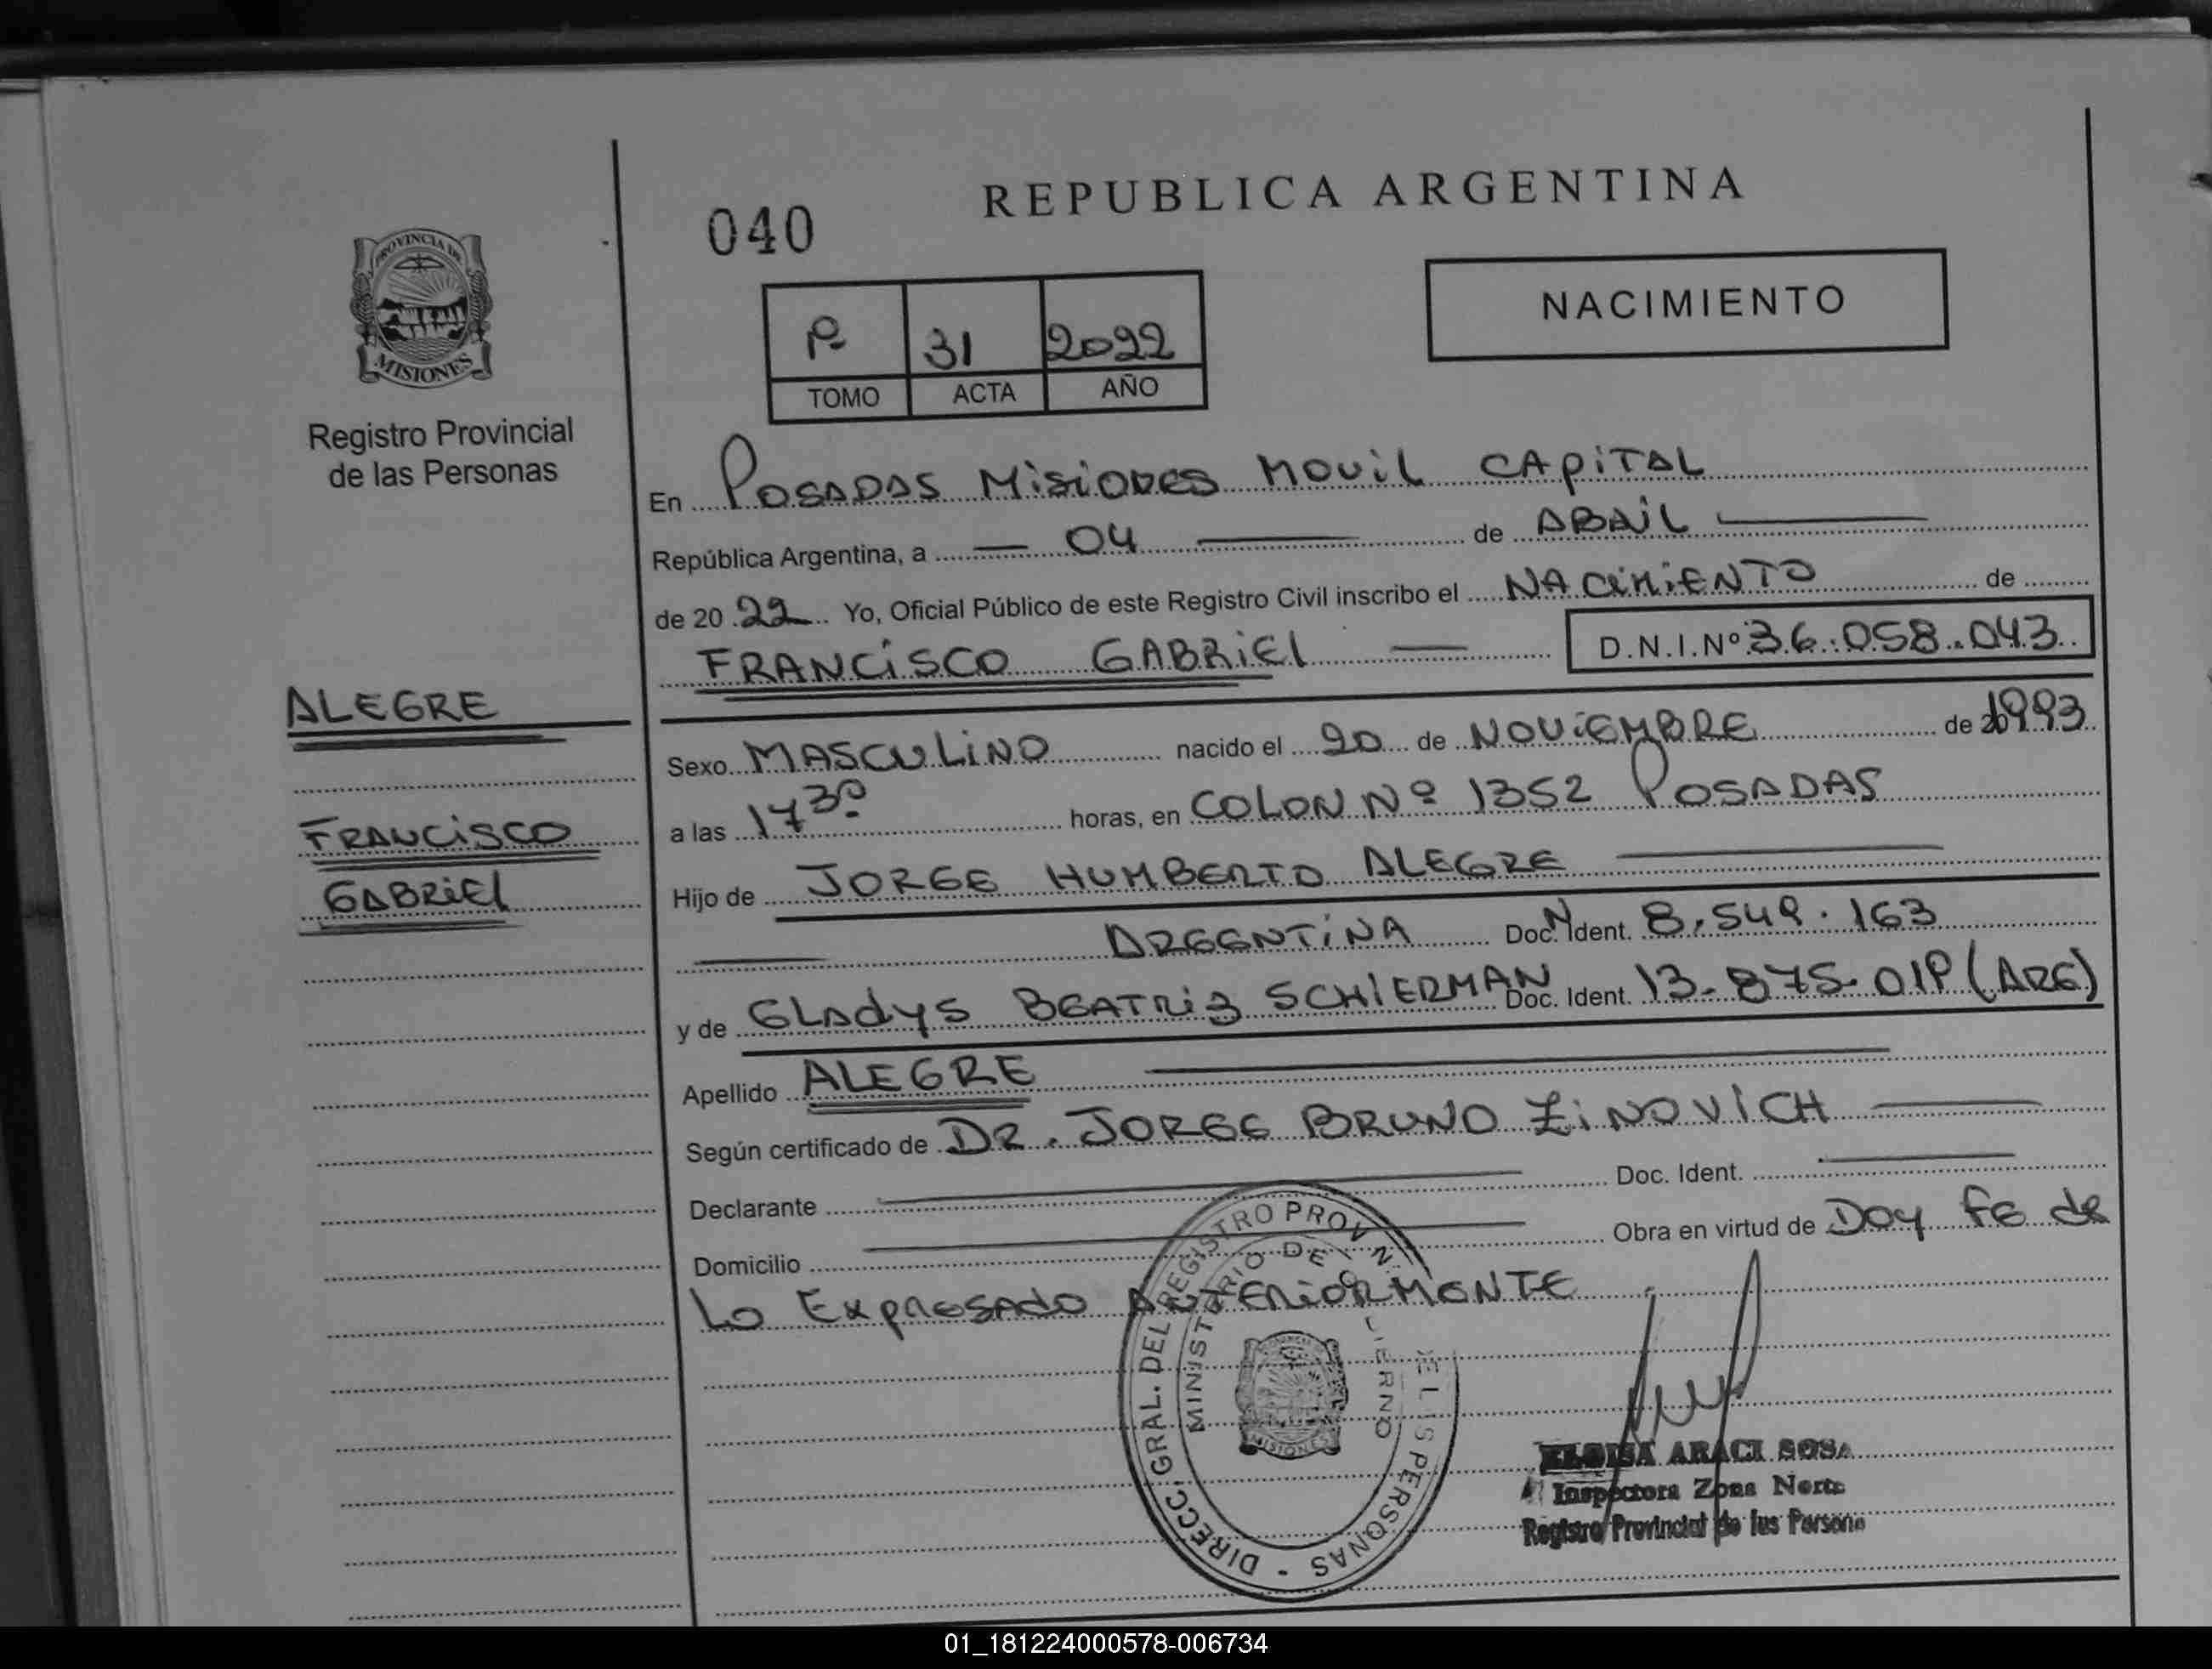 REPUBLICA ARGENTINA
040
NACIMIENTO
PROVINCIA DE
MISIONES
31 2022
TOMO ACTA AÑO
Registro Provincial
de las Personas
En POSADAS MISIONES MOVIL CAPITAL
República Argentina, a 04 de ABRIL
de 2022 Yo, Oficial Público de este Registro Civil inscribo el NACIMIENTO de
FRANCISCO GABRIEL D.N.I.Nº 36.058.043
ALEGRE
FRANCISCO
GABRIEL
Sexo MASCULINO nacido el 20 de NOVIEMBRE de 1993
a las 17 30 horas, en COLON Nº 1352 POSADAS
Hijo de JORGE HUMBERTO ALEGRE
ARGENTINA Doc. Ident.
y de GLADYS BEATRIZ SCHIERMAN Doc. Ident. (ARG)
Apellido ALEGRE
Según certificado de DR. JORGE BRUNO ZINOVICH
Declarante Doc. Ident.
Domicilio Obra en virtud de DOY FE de
LO EXPRESADO ANTERIORMENTE
DIRECC. GRAL. DEL REGISTRO PERSONAS
MISIONES
ELOISA ARACI SOSA
Inspectora Zona Norte
Registro Provincial de las Persona
01_181224000578-006734